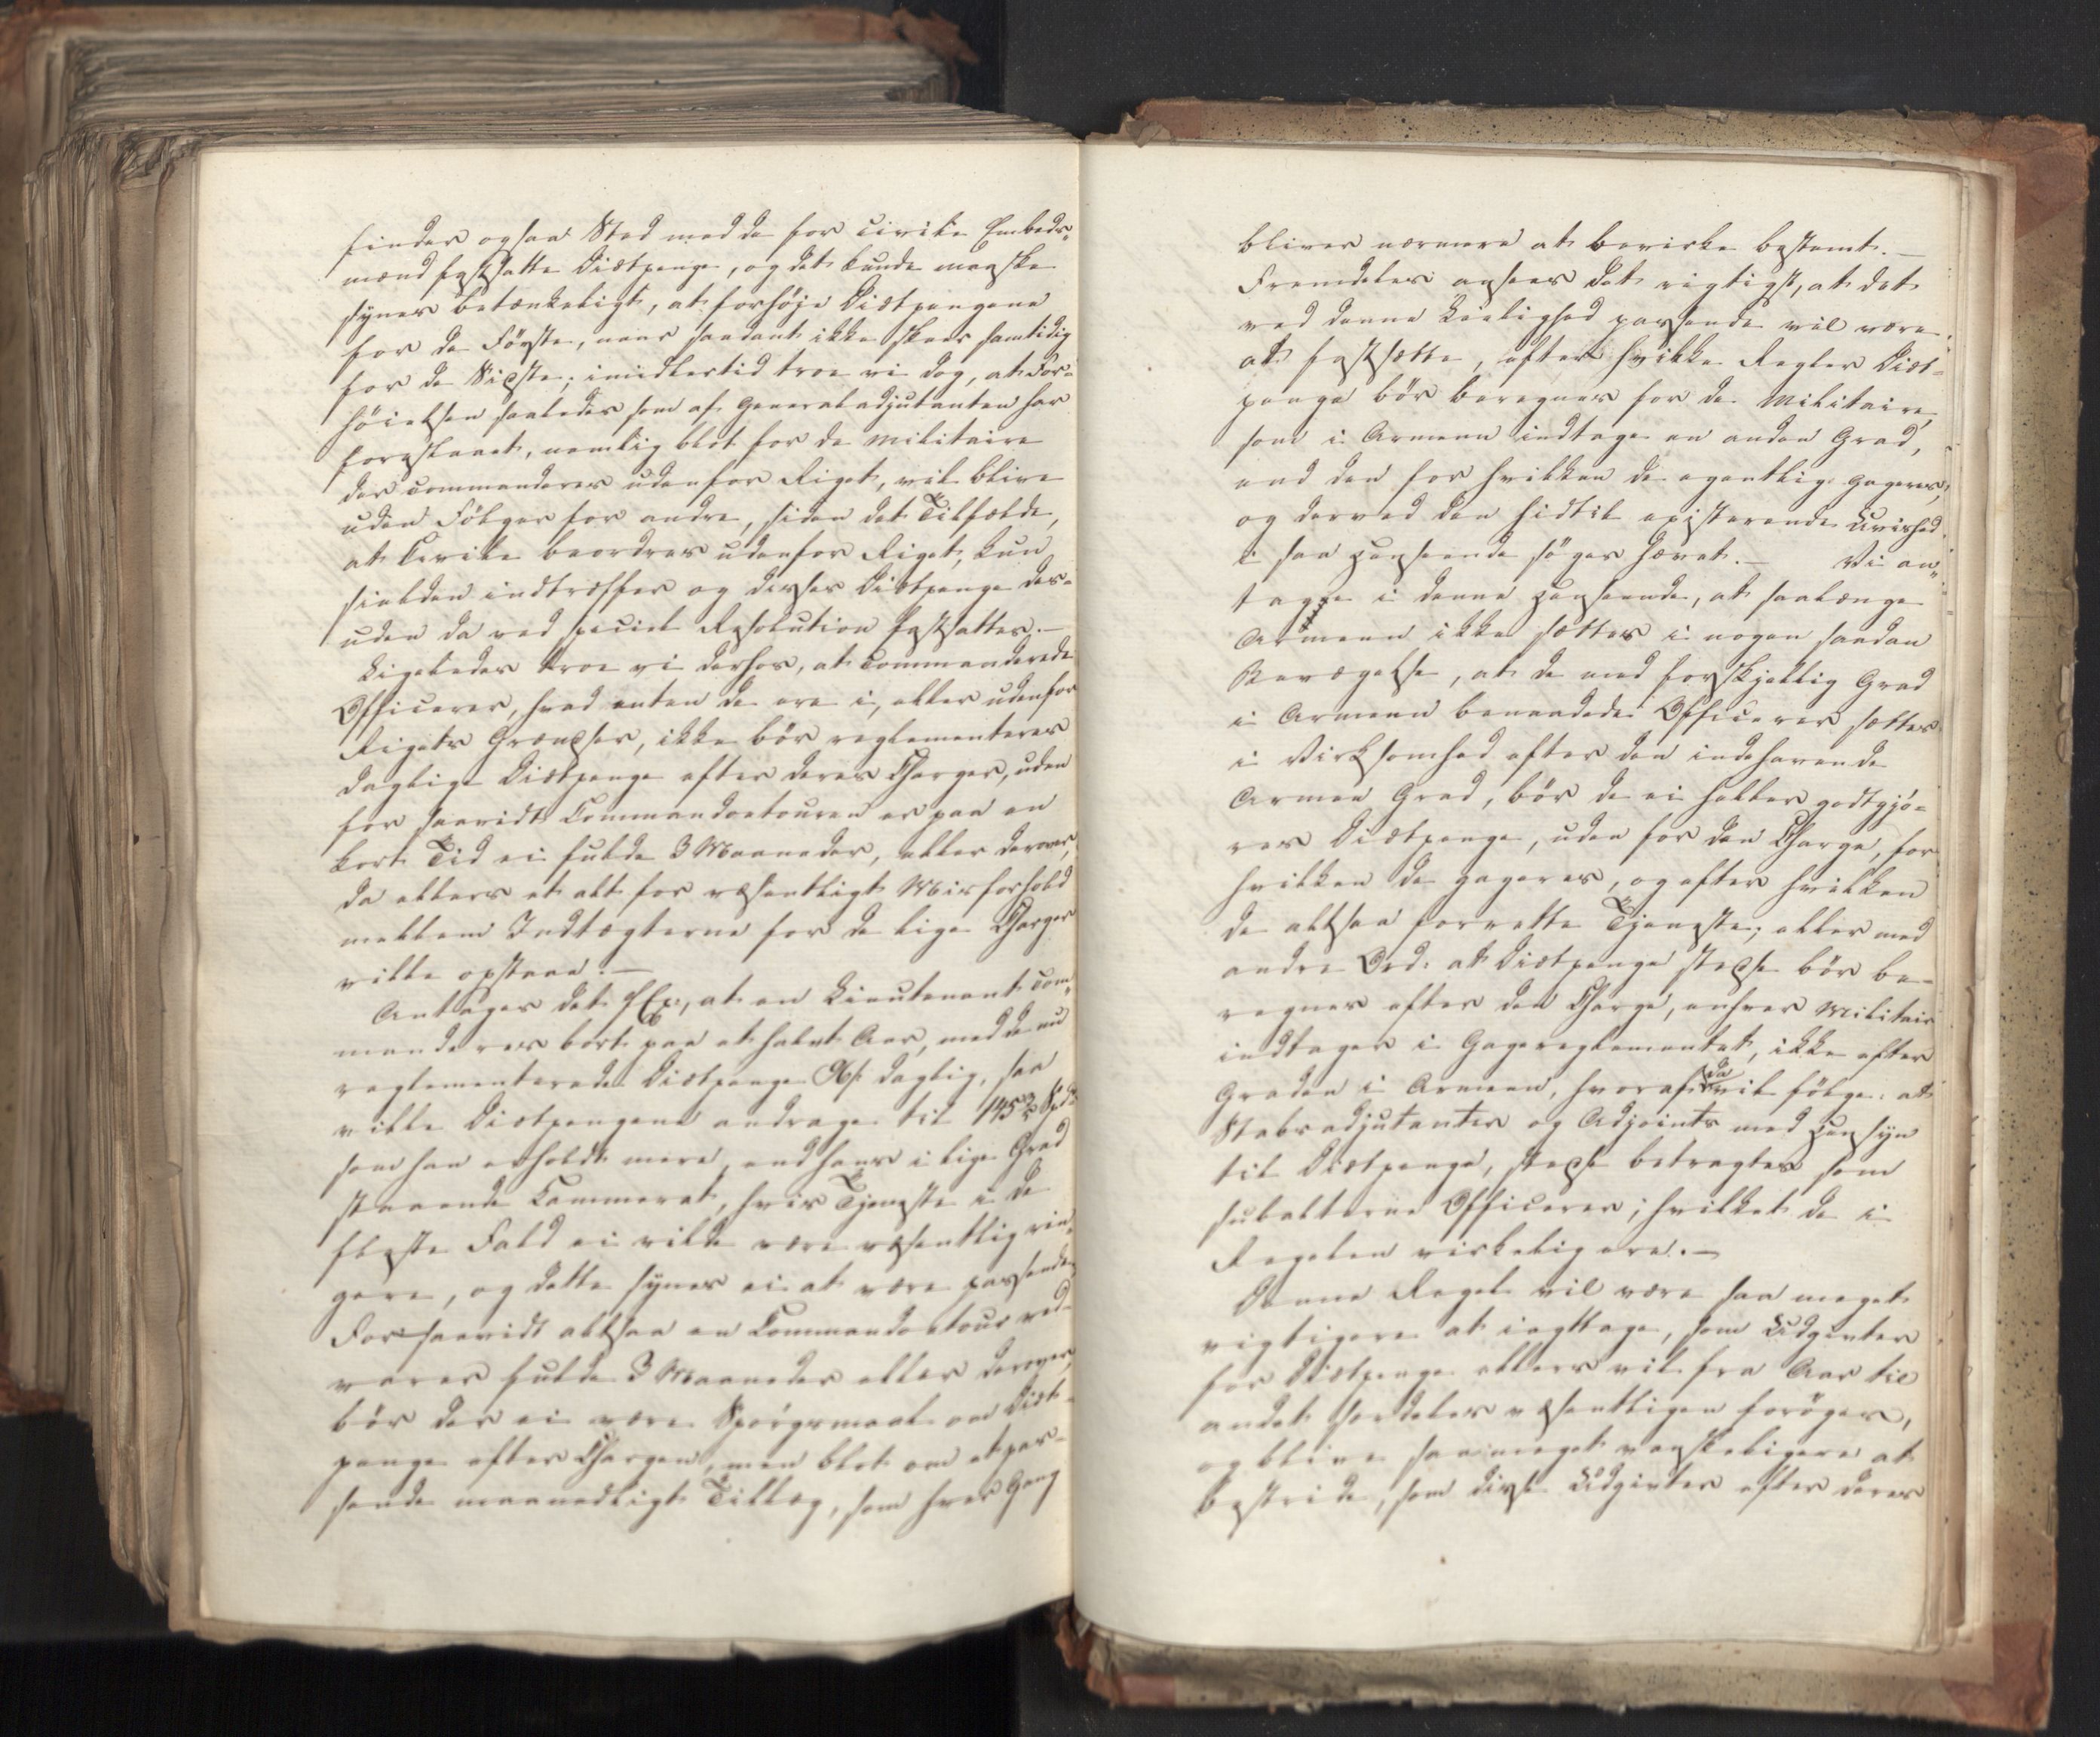 finder ogsaa Sted med de for civile Embeds-
mænd fastsatte Diætpenge, og det kunde maaske
synes betænkeligt, at forhøje Diætpengene
for de Første, naar saadant ikke skeer samtidig
for de Sidste; imidlertid troe vi dog, at For-
höielsen saaledes som af Generaladjutanten har
foreslaaet, nemlig blot for de Militaire
der commanderes udenfor Riget, vil blive
uden Følger for andre, siden det Tilfælde,
at Civile beordres udenfor Riget, kun
sielden indtræffer og disses Diætpenge des-
uden da ved speciel Resolution fastsættes.—
Ligeledes troe vi derhos, at commanderede
Officerer, hvad enten de ere i, eller udenfor
Rigets Grændser, ikke bör reglementeres
daglige Diætpenge efter deres Charger, uden
for saavidt Commandoetouren er paa en
kort Tid ei fulde 3 Maaneder, eller derover,
da ellers et alt for væsentligt Misforhold
mellem Indtægterne for de lige Charger
ville opstaae.—
Antages det f Ex:, at en Lieutenant com-
manderes bort paa et halvt Aar, med de nu
reglementerede Diætpenge daglig, saa
ville Diætpengene andrage til 145 Spd
som han erholdt mere, end hans i lige Grad
staaende Kammerat, hvis Tjeneste i de
fleste Fald ei vilde være væsentlig rin-
gere, og dette synes ei at være passende.
For saavidt altsaa en Commandoetour ved-
varer fulde 3 Maaneder eller derover,
bör der ei være Spörgsmaal om Diæt-
penge efter Chargen, men blot om et pas-
sende maanedligt Tillæg, som hver Gang
bliver nærmere at bevirke bestemt.—
Fremdeles ansees det rigtigst, at det
ved denne Leilighed passende vil være
at fastsætte, efter hvilke Regler Diæt-
penge bör beregnes for de Militaire,
som i Armeen indtage en anden Grad,
end den for hvilken de egentlig gageres,
og derved den hidtil existerende Uvished
i saa Henseende söges hævet.— Vi an-
tage i denne Henseende, at saalænge
Armeen ikke sættes i nogen saadan
Bevægelse, at de med forskjellig Grad
i Armeen benaadede Officerer sættes
i Virksomhed efter den indehavende
Armee Grad, bör de ei heller godtgjö-
res Diætpenge, uden for den Charge, for
hvilken de gageres, og efter hvilken
de altsaa forrette Tjeneste; eller med
andre Ord: at Diætpenge stedse bör be-
regnes efter den Charge, enhver Militair
indtager i Gagereglementet, ikke efter
Graden i Armeen, hvoraf da vil fölge: at
Stabsadjutanter og Adjoints med Hensyn
til Diætpenge, stedse betragtes som
subalterne Officerer; hvilket de i
Regelen virkelig ere.—
Denne Regel vil være saa meget
vigtigere at iagttage, som Udgivter
for Diætpenge ellers vil fra Aar til
andet særdeles væsentligen forøges,
og blive saa meget vanskeligere at
bestride, som disse Udgivter efter deres